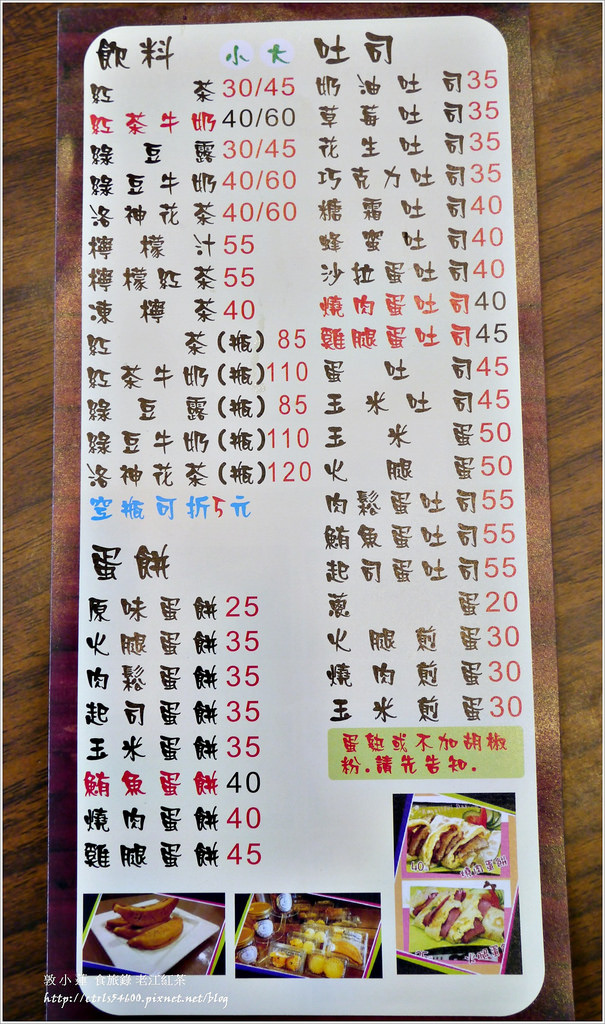 飲料 小 大
紅茶 30/45
紅茶牛奶 40/60
綠豆露 30/45
綠豆牛奶 40/60
洛神花茶 40/60
檸檬汁 55
檸檬紅茶 55
凍檸茶 40
紅茶(瓶) 85
紅茶牛奶(瓶) 110
綠豆露(瓶) 85
綠豆牛奶(瓶) 110
洛神花茶(瓶) 120
空瓶可折5元
蛋餅
原味蛋餅 25
火腿蛋餅 35
肉鬆蛋餅 35
起司蛋餅 35
玉米蛋餅 35
鮪魚蛋餅 40
燒肉蛋餅 40
雞腿蛋餅 45
吐司
奶油吐司 35
草莓吐司 35
花生吐司 35
巧克力吐司 35
糖霜吐司 40
蜂蜜吐司 40
沙拉蛋吐司 40
燒肉蛋吐司 40
雞腿蛋吐司 45
蛋吐司 45
玉米吐司 45
玉米蛋 50
火腿蛋 50
肉鬆蛋吐司 55
鮪魚蛋吐司 55
起司蛋吐司 55
蔥蛋 20
火腿煎蛋 30
燒肉煎蛋 30
玉米煎蛋 30
蛋熟或不加胡椒
粉.請先告知.
敦小蓮 食旅錄 老江紅茶
http://etrls54600.pixnet.net/blog